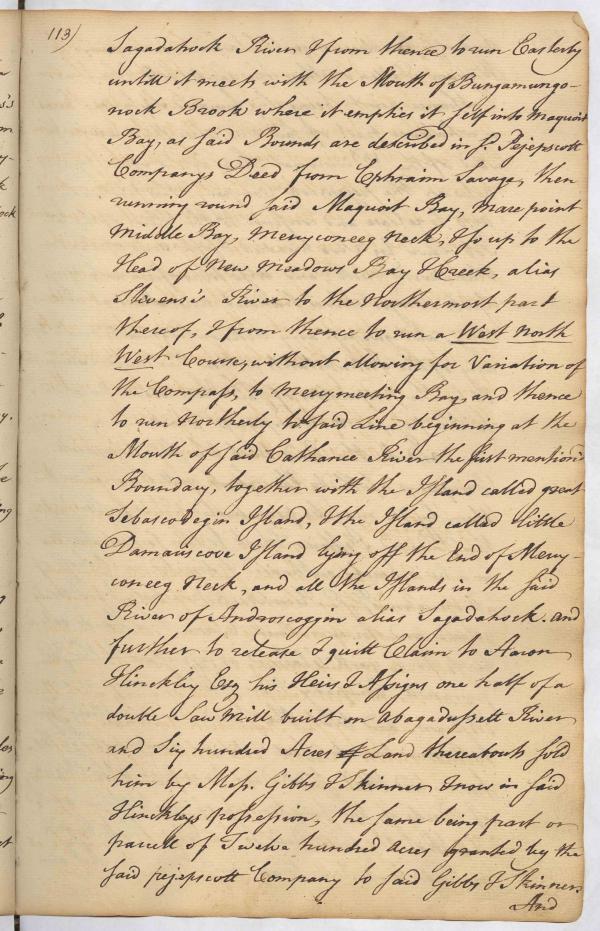 113)
Sagadahock River & from thence to run Easterly
untill it meets with the Mouth of Bungamungo-
nock Brook where it empties it self into Maquoit
Bay, as said Bounds are described in sd. Pejepscott
Companys Deed from Ephraim Savage, then
running round said Maquoit Bay, mare point
Middle Bay, Merryconeeg Neck, & so up to the
Head of New Meadows Bay & Creek, alias
Stevens's River to the Northermost part
thereof, & from thence to run a West North
West Course, without allowing for Variation of
the Compass, to Merrymeeting Bay, and thence
to run Northerly to said Line beginning at the
Mouth of said Cathance River the first mention'd
Boundary, together with the Island called great
Sebascodegin Island, & the Island called little
Damariscove Island lying off the End of Merry-
coneeg Neck, and all the Islands in the said
River of Androscoggin alias Sagadahock. and
further to release & quitt Claim to Aaron
Hinckley Esq his Heirs & Assigns one half of a
double Saw Mill built on Abagadussett River
and Six hundred Acres of Land thereabouts sold
him by Mess. Gibbs & Skinner & now in said
Hinckleys possession, the same being part or
parcell of Twelve hundred Acres granted by the
said pejepscott Company to said Gibbs & Skinner.
And